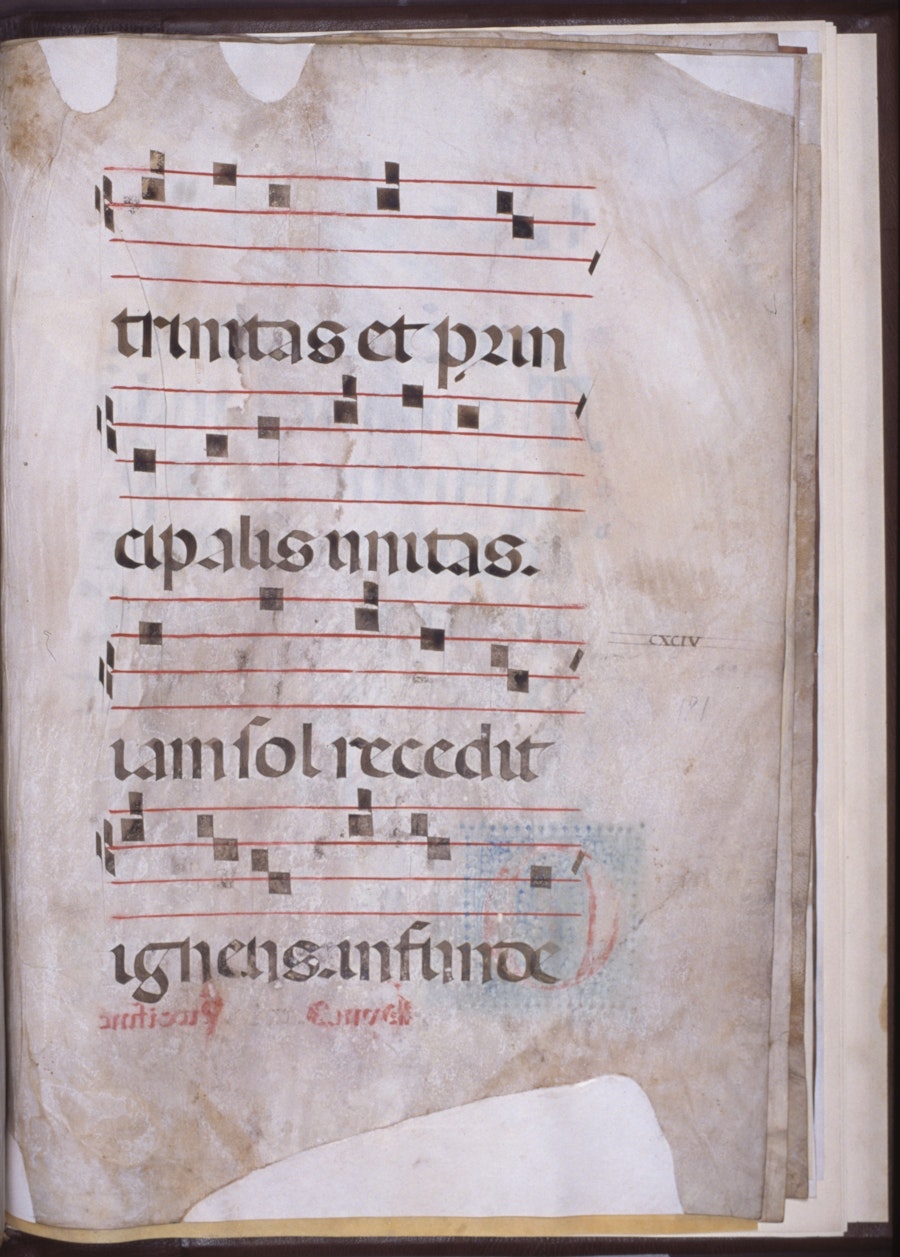 trinitas et prin
cipalis unitas.
CXCIV
iam sol recedit
igneus. infunde